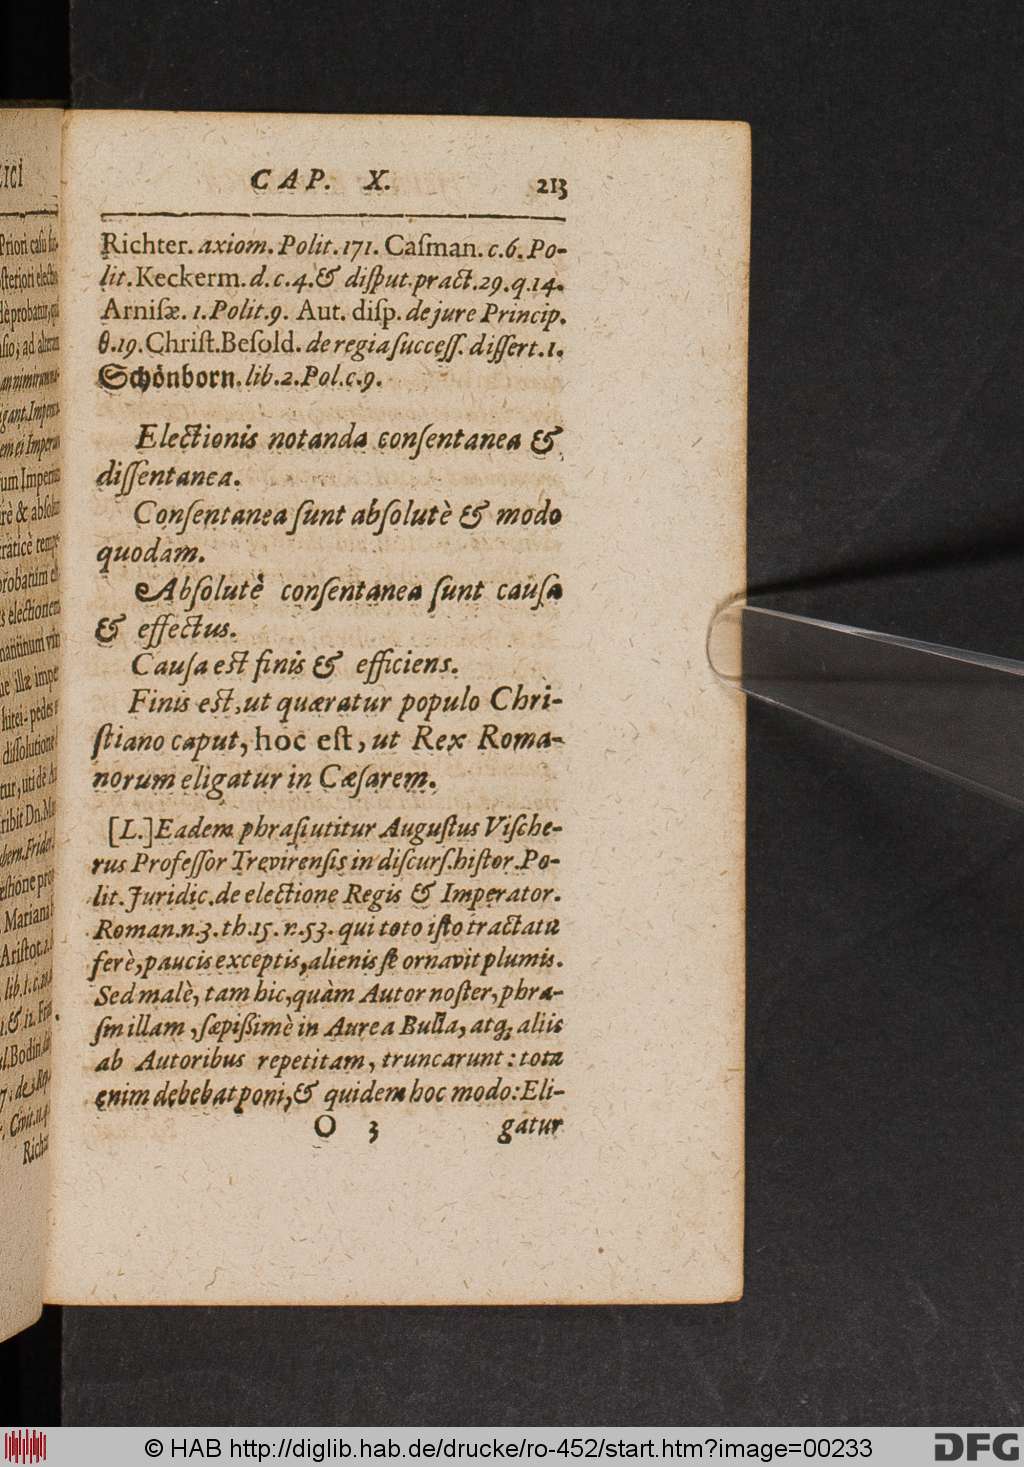 CAP. X. 213
Richter. axiom. Polit. 171. Caſman. c. 6. Po-
lit. Keckerm. d. c. 4. & diſput. pract. 29. q. 14.
Arniſæ. 1. Polit. 9. Aut. diſp. de jure Princip.
θ. 19. Chriſt. Beſold. de regia ſucceſſ. diſſert. 1.
Schönborn. lib. 2. Pol. c. 9.
Electionis notanda conſentanea &
diſſentanea.
Conſentanea ſunt abſolutè & modo
quodam.
Abſolutè conſentanea ſunt cauſa
& effectus.
Cauſa eſt finis & efficiens.
Finis eſt, ut quæratur populo Chri-
ſtiano caput, hoc eſt, ut Rex Roma-
norum eligatur in Cæſarem.
[L.] Eadem phraſi utitur Auguſtus Viſche-
rus Profeſſor Trevirenſis in diſcurſ. hiſtor. Po-
lit. Juridic. de electione Regis & Imperator.
Roman. n. 3. th. 15. n. 53. qui toto iſto tractatu
ferè, paucis exceptis, alienis ſe ornavit plumis.
Sed malè, tam hic, quàm Autor noſter, phra-
ſin illam, ſæpiſſimè in Aurea Bulla, atq; aliis
ab Autoribus repetitam, truncarunt: tota
enim debebat poni, & quidem hoc modo: Eli-
O 3 gatur
© HAB http://diglib.hab.de/drucke/ro-452/start.htm?image=00233
DFG